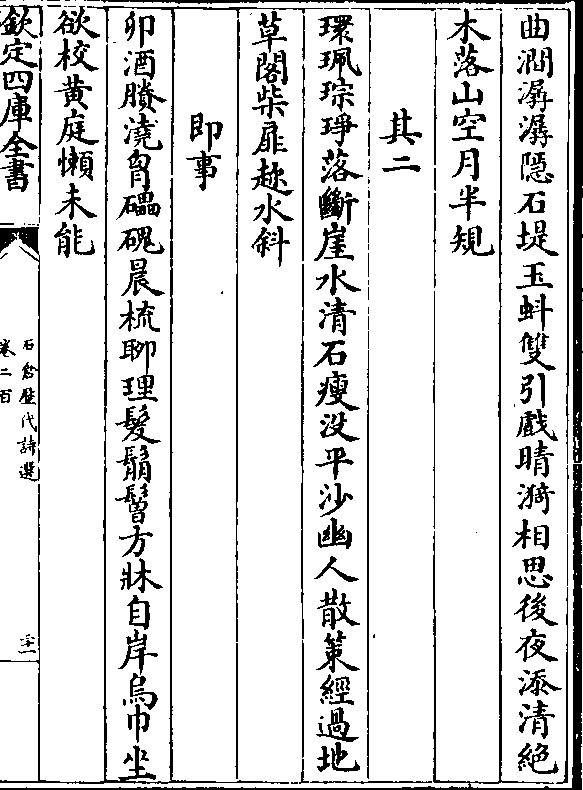 曲澗潺潺隐石堤玉蚪雙引戲晴漪相思後夜添清絶
木落山空月半規
其二
環珮琮琤落斷崖水清石瘦没平沙幽人散策經過地
草閣柴扉趂水斜
即事
卯酒賸澆胷礧磈晨梳聊理髮鬅鬙方牀自岸烏巾坐
欲校黄庭懶未能
欽定四庫全書
石倉歷代詩選
卷二百